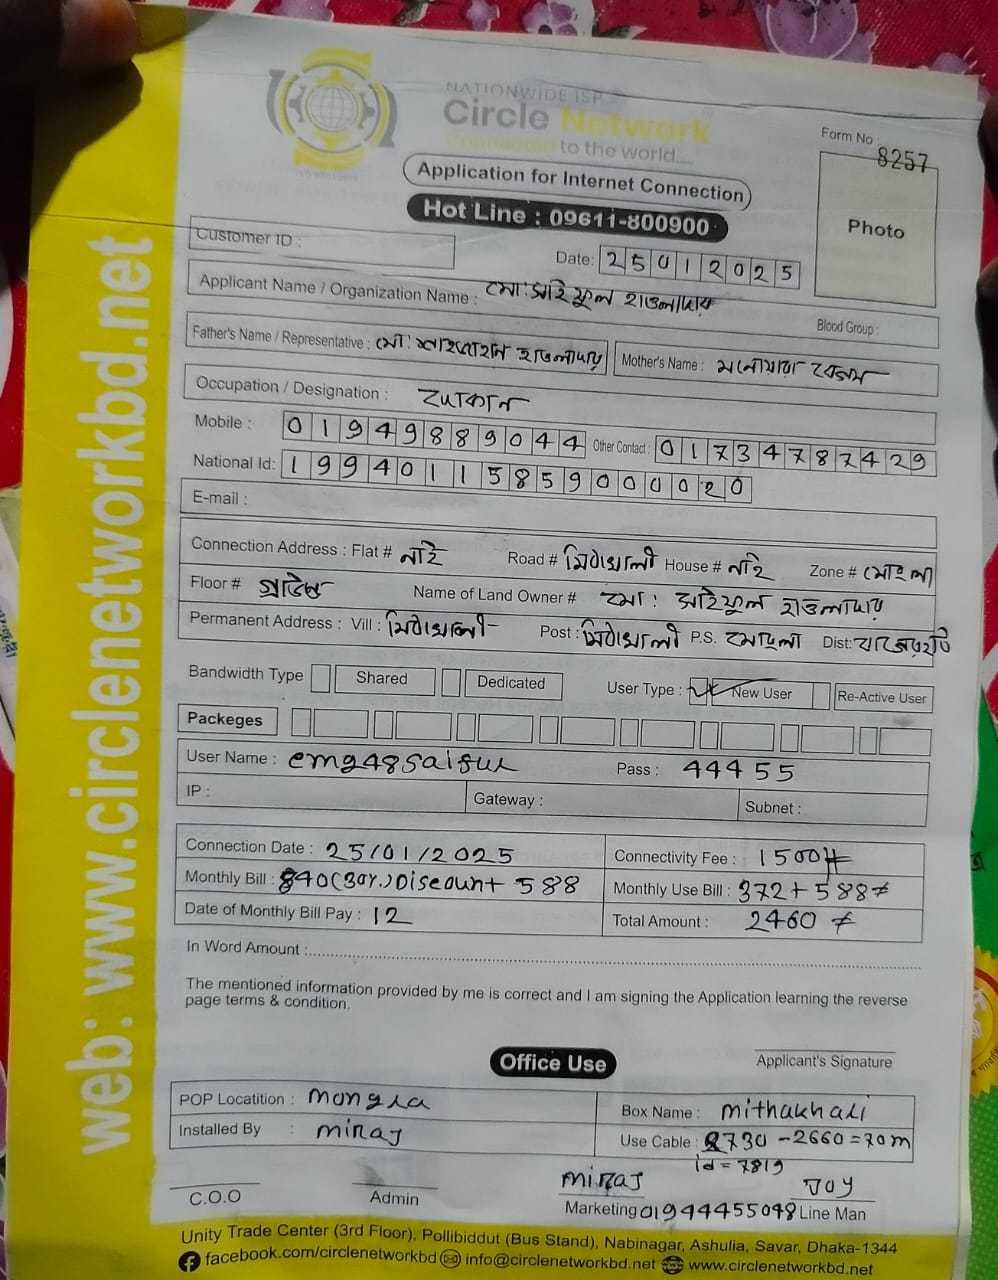 NATIONWIDE ISP
Circle Network
Connected to the world.....
Form No :
8257
Application for Internet Connection
Hot Line : 09611-800900
Photo
Customer ID :
Date: 25012025
Applicant Name / Organization Name : মো: সাইফুল হাওলাদার
Blood Group :
Father's Name / Representative : মো: শাহজাহান হাওলাদার Mother's Name : মনোয়ারা বেগম
Occupation / Designation : দোকান
Mobile : 01949889044 Other Contact : 01734787429
National Id: 19940115859000020
E-mail :
Connection Address : Flat # নাই Road # মিঠাখালী House # নাই Zone # মোংলা
Floor # গ্রাউন্ড Name of Land Owner # মো: সাইফুল হাওলাদার
Permanent Address : Vill : মিঠাখালী Post : মিঠাখালী P.S. মোংলা Dist: বাগেরহাট
Bandwidth Type Shared Dedicated User Type : New User Re-Active User
Packeges
User Name : emg48saiful Pass : 44455
IP : Gateway : Subnet :
Connection Date : 25/01/2025 Connectivity Fee : 1500/=
Monthly Bill : 840(30%)Discount 588 Monthly Use Bill : 372+588/=
Date of Monthly Bill Pay : 12 Total Amount : 2460/=
In Word Amount :
The mentioned information provided by me is correct and I am signing the Application learning the reverse
page terms & condition.
Applicant's Signature
Office Use
POP Locatition : mongla Box Name : mithakhali
Installed By : miraj Use Cable : 2730-2660=70m
id=7819
miraj Joy
C.O.O Admin Marketing 01944455048 Line Man
Unity Trade Center (3rd Floor), Pollibiddut (Bus Stand), Nabinagar, Ashulia, Savar, Dhaka-1344
facebook.com/circlenetworkbd info@circlenetworkbd.net www.circlenetworkbd.net
web: www.circlenetworkbd.net